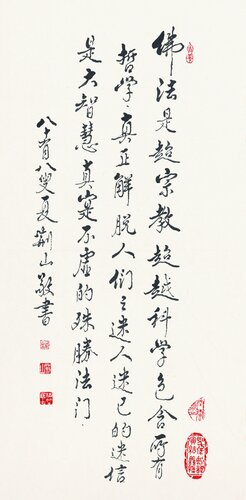 佛法是超宗教超越科學包含所有
哲學、真正解脫人們之迷人迷己的迷信
是大智慧真寔不虛的殊勝法門.
八十有八叟夏荆山敬書